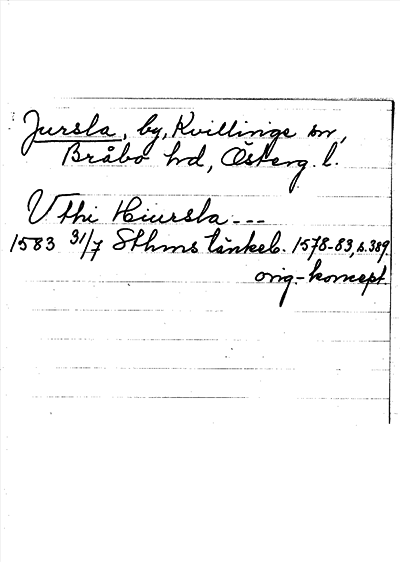 Jursla, by, Kvillinge sn,
Bråbo hd, Österg. l.
Vthi Hiursla ---
1583 31/7 Sthms tänkeb. 1578-83, s. 389,
orig.-koncept.